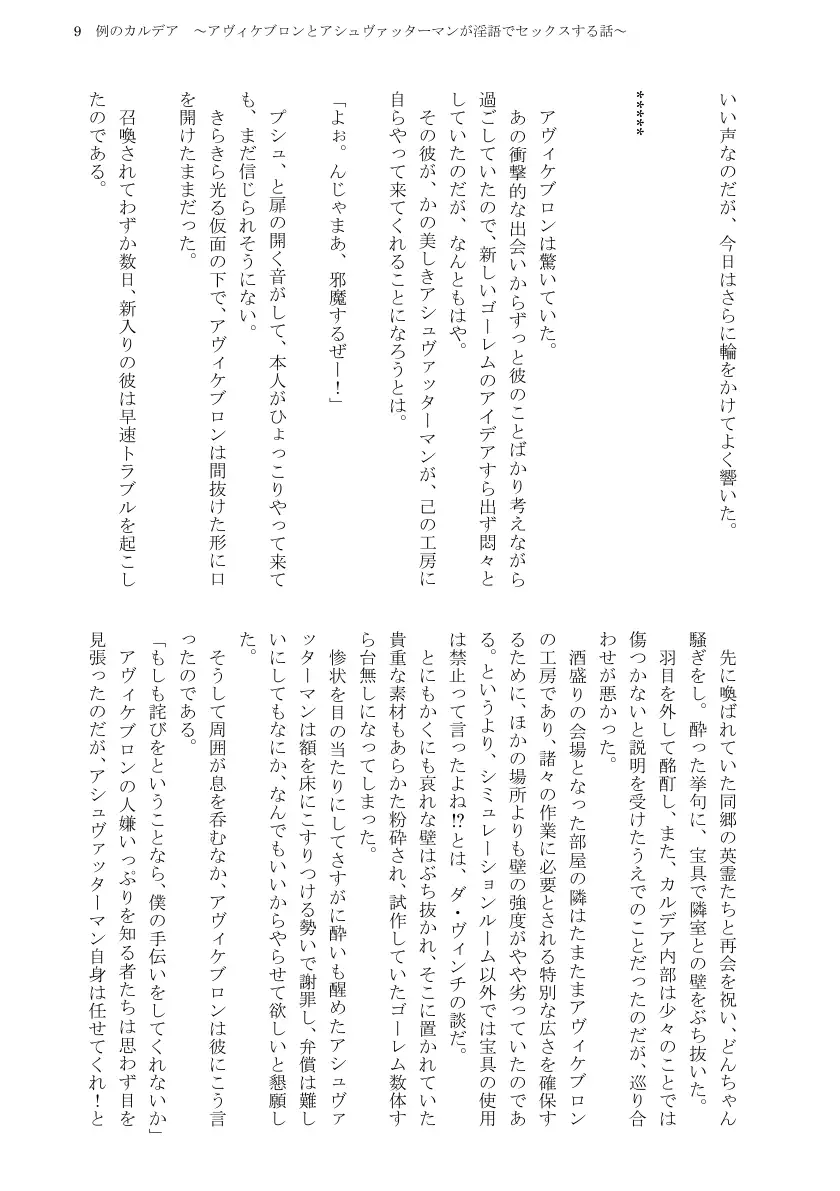 9 例のカルデア ～アヴィケブロンとアシュヴァッターマンが淫語でセックスする話～
いい声なのだが、今日はさらに輪をかけてよく響いた。
*****
アヴィケブロンは驚いていた。
あの衝撃的な出会いからずっと彼のことばかり考えながら
過ごしていたので、新しいゴーレムのアイデアすら出ず悶々と
していたのだが、なんともはや。
その彼が、かの美しきアシュヴァッターマンが、己の工房に
自らやって来てくれることになろうとは。
「よぉ。んじゃまあ、邪魔するぜー！」
プシュ、と扉の開く音がして、本人がひょっこりやって来て
も、まだ信じられそうにない。
きらきら光る仮面の下で、アヴィケブロンは間抜けた形に口
を開けたままだった。
召喚されてわずか数日、新入りの彼は早速トラブルを起こし
たのである。
先に喚ばれていた同郷の英霊たちと再会を祝い、どんちゃん
騒ぎをし。酔った挙句に、宝具で隣室との壁をぶち抜いた。
羽目を外して酩酊し、また、カルデア内部は少々のことでは
傷つかないと説明を受けたうえでのことだったのだが、巡り合
わせが悪かった。
酒盛りの会場となった部屋の隣はたまたまアヴィケブロン
の工房であり、諸々の作業に必要とされる特別な広さを確保す
るために、ほかの場所よりも壁の強度がやや劣っていたのであ
る。というより、シミュレーションルーム以外では宝具の使用
は禁止って言ったよね⁉とは、ダ・ヴィンチの談だ。
とにもかくにも哀れな壁はぶち抜かれ、そこに置かれていた
貴重な素材もあらかた粉砕され、試作していたゴーレム数体す
ら台無しになってしまった。
惨状を目の当たりにしてさすがに酔いも醒めたアシュヴァ
ッターマンは額を床にこすりつける勢いで謝罪し、弁償は難し
いにしてもなにか、なんでもいいからやらせて欲しいと懇願し
た。
そうして周囲が息を呑むなか、アヴィケブロンは彼にこう言
ったのである。
「もしも詫びをということなら、僕の手伝いをしてくれないか」
アヴィケブロンの人嫌いっぷりを知る者たちは思わず目を
見張ったのだが、アシュヴァッターマン自身は任せてくれ！と